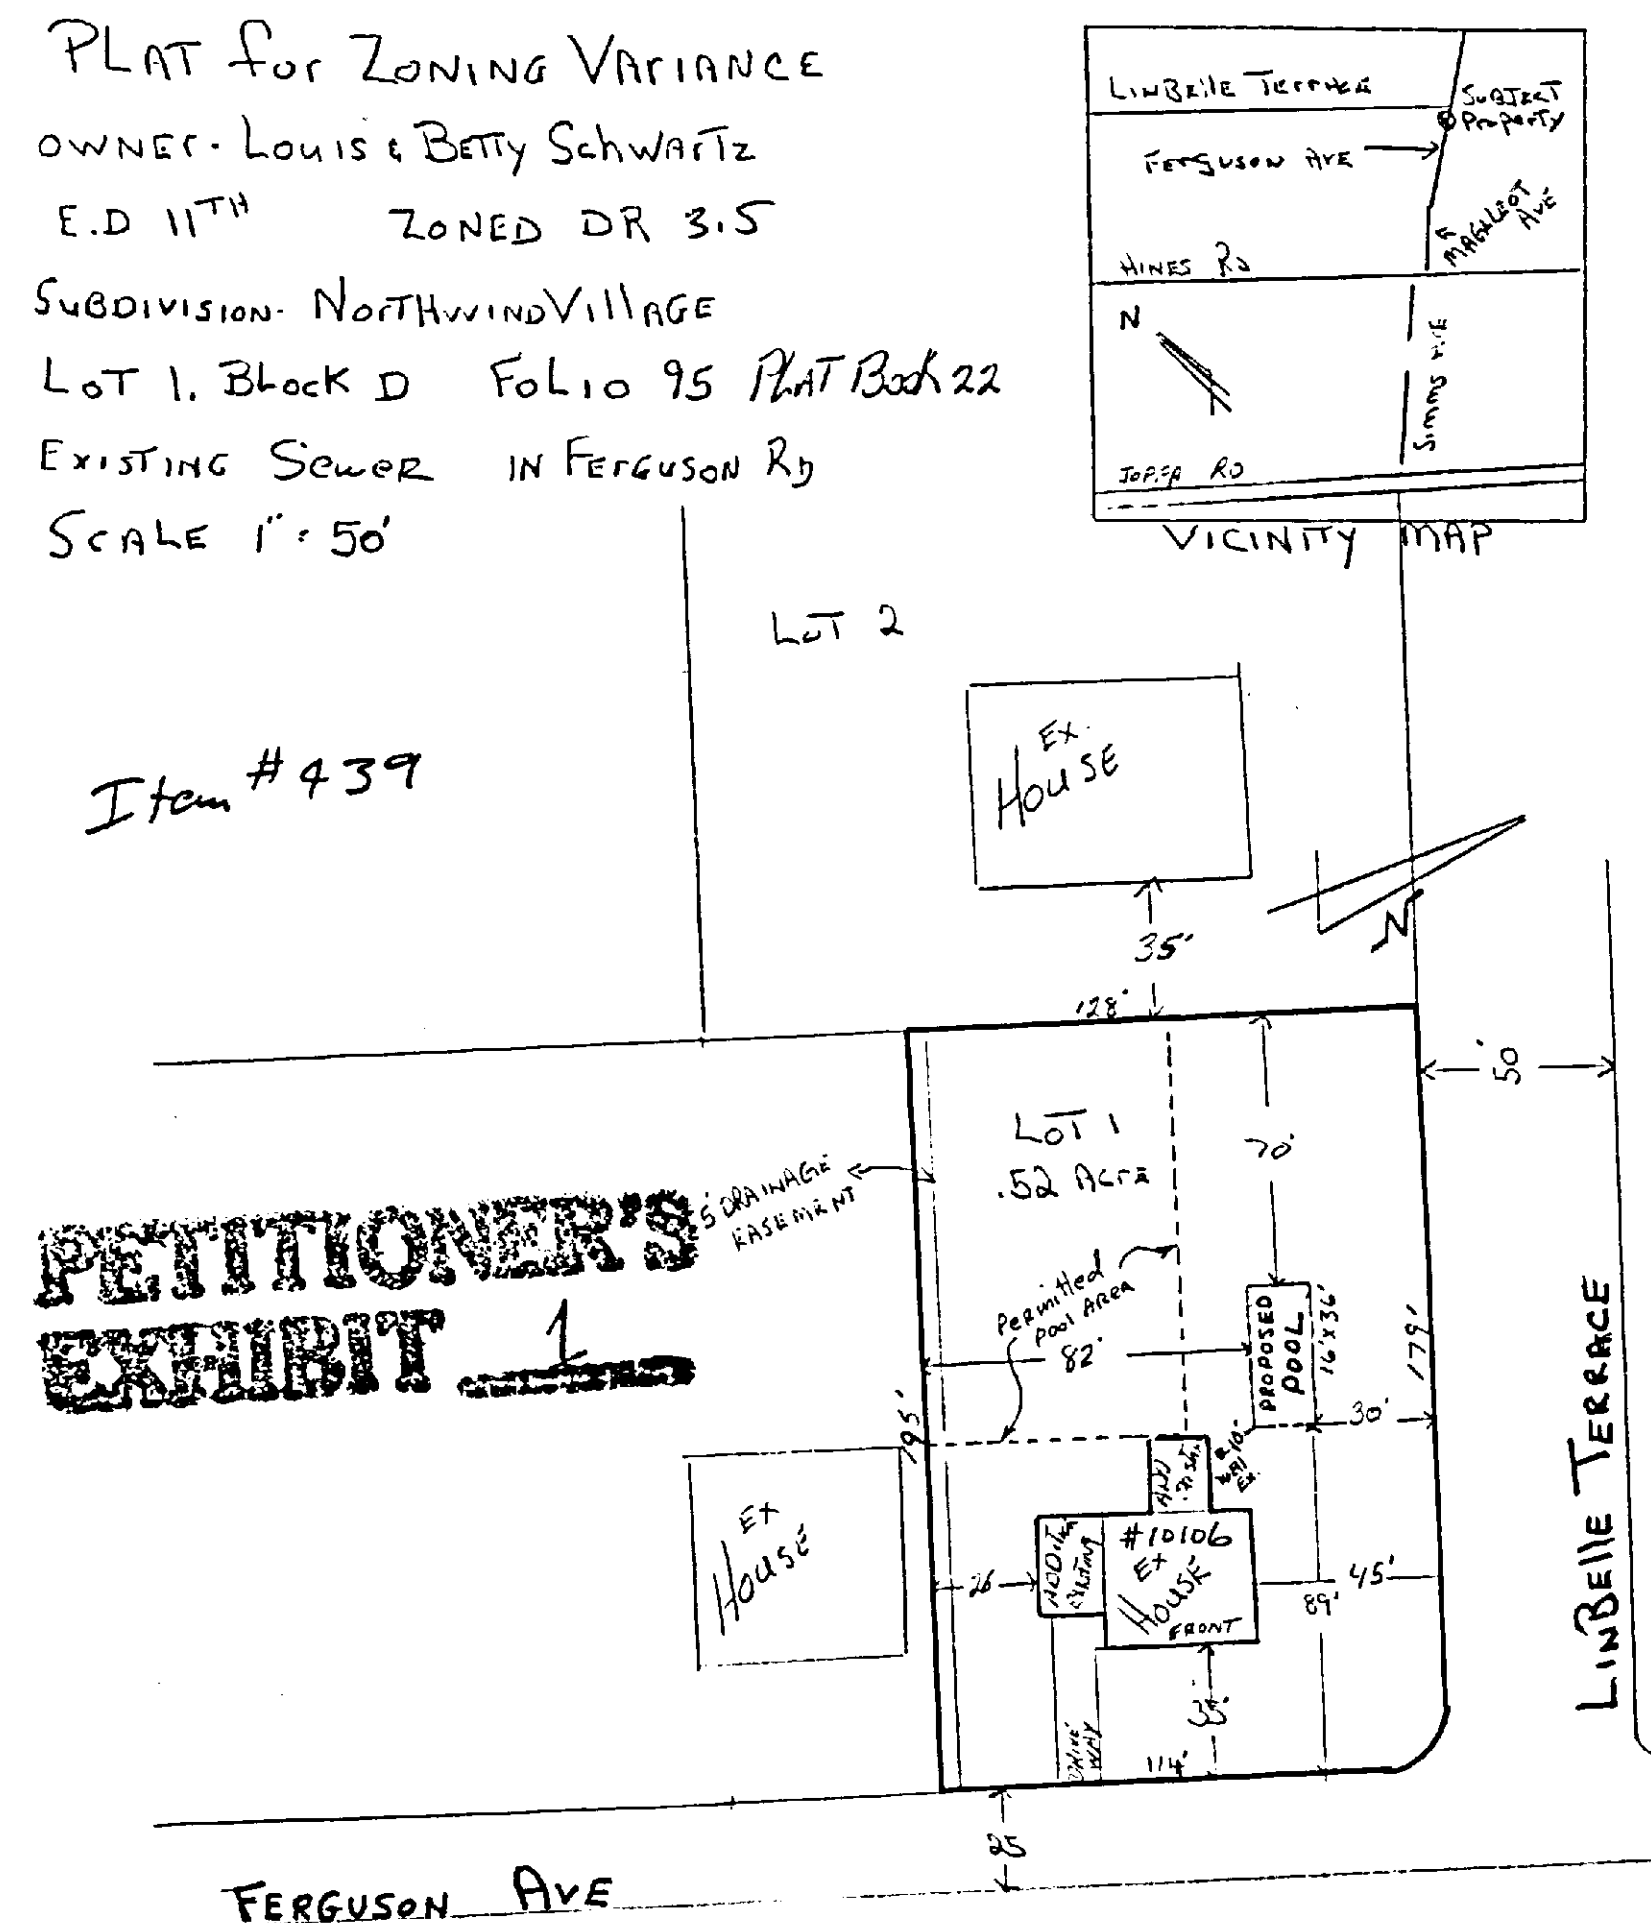 PLAT for ZONING VARIANCE
OWNER- Louis & BETTY SCHWARTZ
E.D 11TH ZONED DR 3.5
SUBDIVISION- NORTHWIND VIllAGE
LOT 1. BLocK D FOLIO 95 PLAT Book 22
EXISTING SewER IN FERGUSON RD
SCALE 1" : 50'
LINBEllE TERRACE
SUBJECT
PropertY
FERGUSON AVE
AVE
HINES RD
N
SIMMS AVE
JOPPA RD
VICINITY MAP
LOT 2
EX.
HOUSE
Item #439
N
35'
128'
50'
LOT 1
.52 ACRE
70'
5' DRAINAGE
EASEMENT
PETITIONER'S
EXHIBIT 1
Permitted
pool AREA
82'
PROPOSED
POOL
16' X 36'
179'
30'
195'
10'
EX
HOUSE
ADDITION
EXISTING
#10106
EX
HOUSE
FRONT
26
45'
89'
DRIVE
WAY
114'
25
LINBEllE TERRACE
FERGUSON AVE